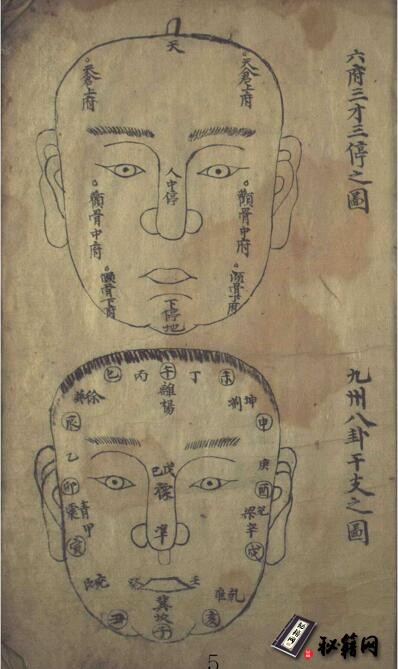 六府三才三停之圖
天
天倉上府
天倉上府
人中停
顴骨中府
顴骨中府
頤骨下府
頤骨下府
下停地
九州八卦干支之圖
巳
丙
午
丁
未
離揚
徐
坤
辰
申
乙
庚
卯
酉
戊
己
豫
震青
甲
梁
辛
寅
戌
準
艮兗
癸
壬
乾雍
冀坎
丑
子
亥
秘籍网
5